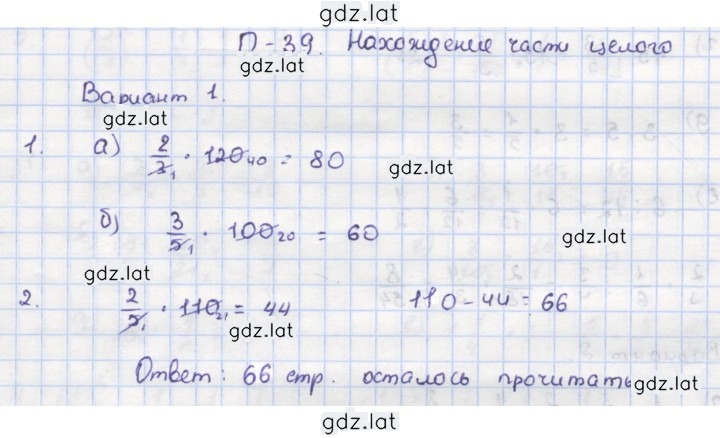 gdz.lat
П-39. Нахождение части целого
gdz.lat
Вариант 1.
gdz.lat
1. а) 2/3₁ · 120₄₀ = 80
gdz.lat
б) 3/5₁ · 100₂₀ = 60
gdz.lat
gdz.lat
2. 2/5₁ · 110₂₁ = 44 110 - 44 = 66
gdz.lat
Ответ: 66 стр. осталось прочитать
gdz.lat
gdz.lat